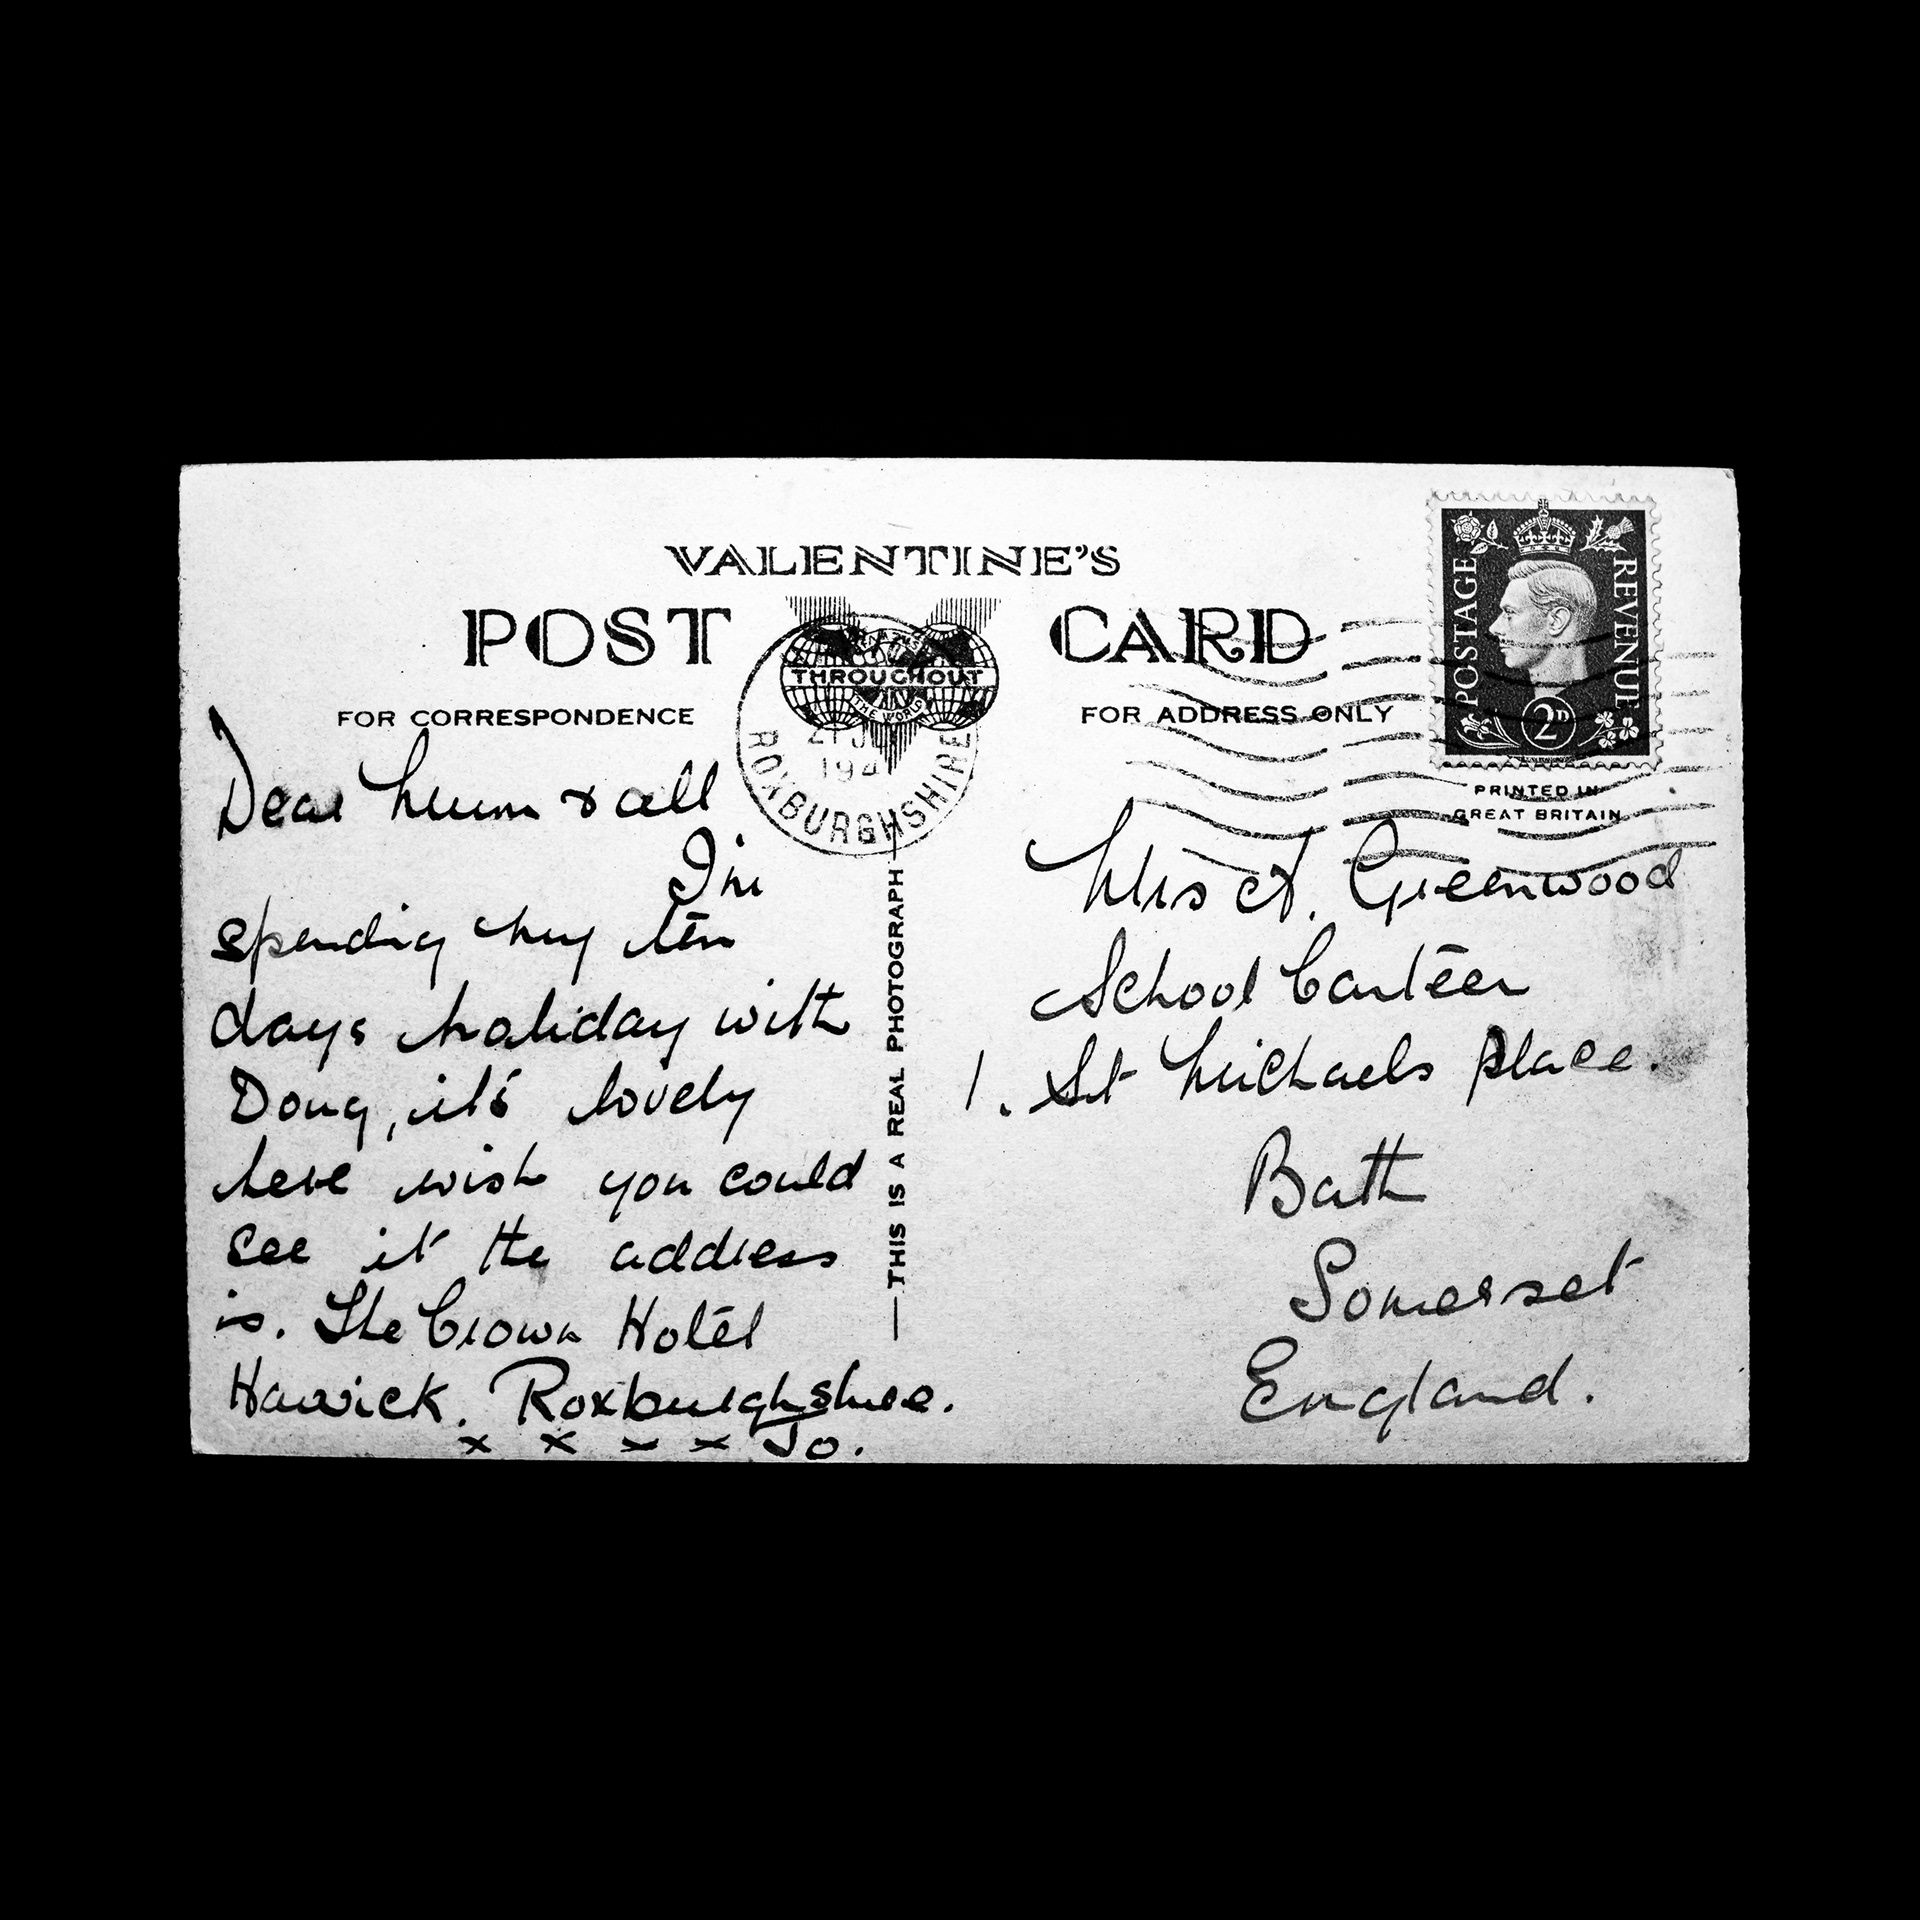 VALENTINE'S
POST CARD
THROUGHOUT
THE WORLD
FOR CORRESPONDENCE
FOR ADDRESS ONLY
POSTAGE
REVENUE
2D
PRINTED IN
GREAT BRITAIN
21
194
ROXBURGHSHIRE
Dear Mum & all
I'm
spending my ten
days holiday with
Doug, it's lovely
here wish you could
see it the address
is. The Crown Hotel
Hawick. Roxburghshire.
x x x x Jo.
THIS IS A REAL PHOTOGRAPH
Mrs A. Greenwood
School Canteen
1. St Michaels place.
Bath
Somerset
England.